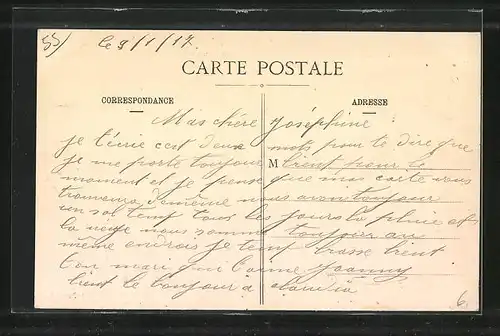 55) le 3/1/17
CARTE POSTALE
CORRESPONDANCE
ADRESSE
Mas chére Joséphine
je técrie cest deux mots pour te dire que
je me porte toujour M bient pour le
moment et je pense que mas carte vous
trouvera, de même nous avon toujour
un sal temp tous les jours la pluie
la neige nous somme toujour au
même endrois je temp brasse bient
ton mari qui t'aime Joanny
bient le bonjour a claudia
6